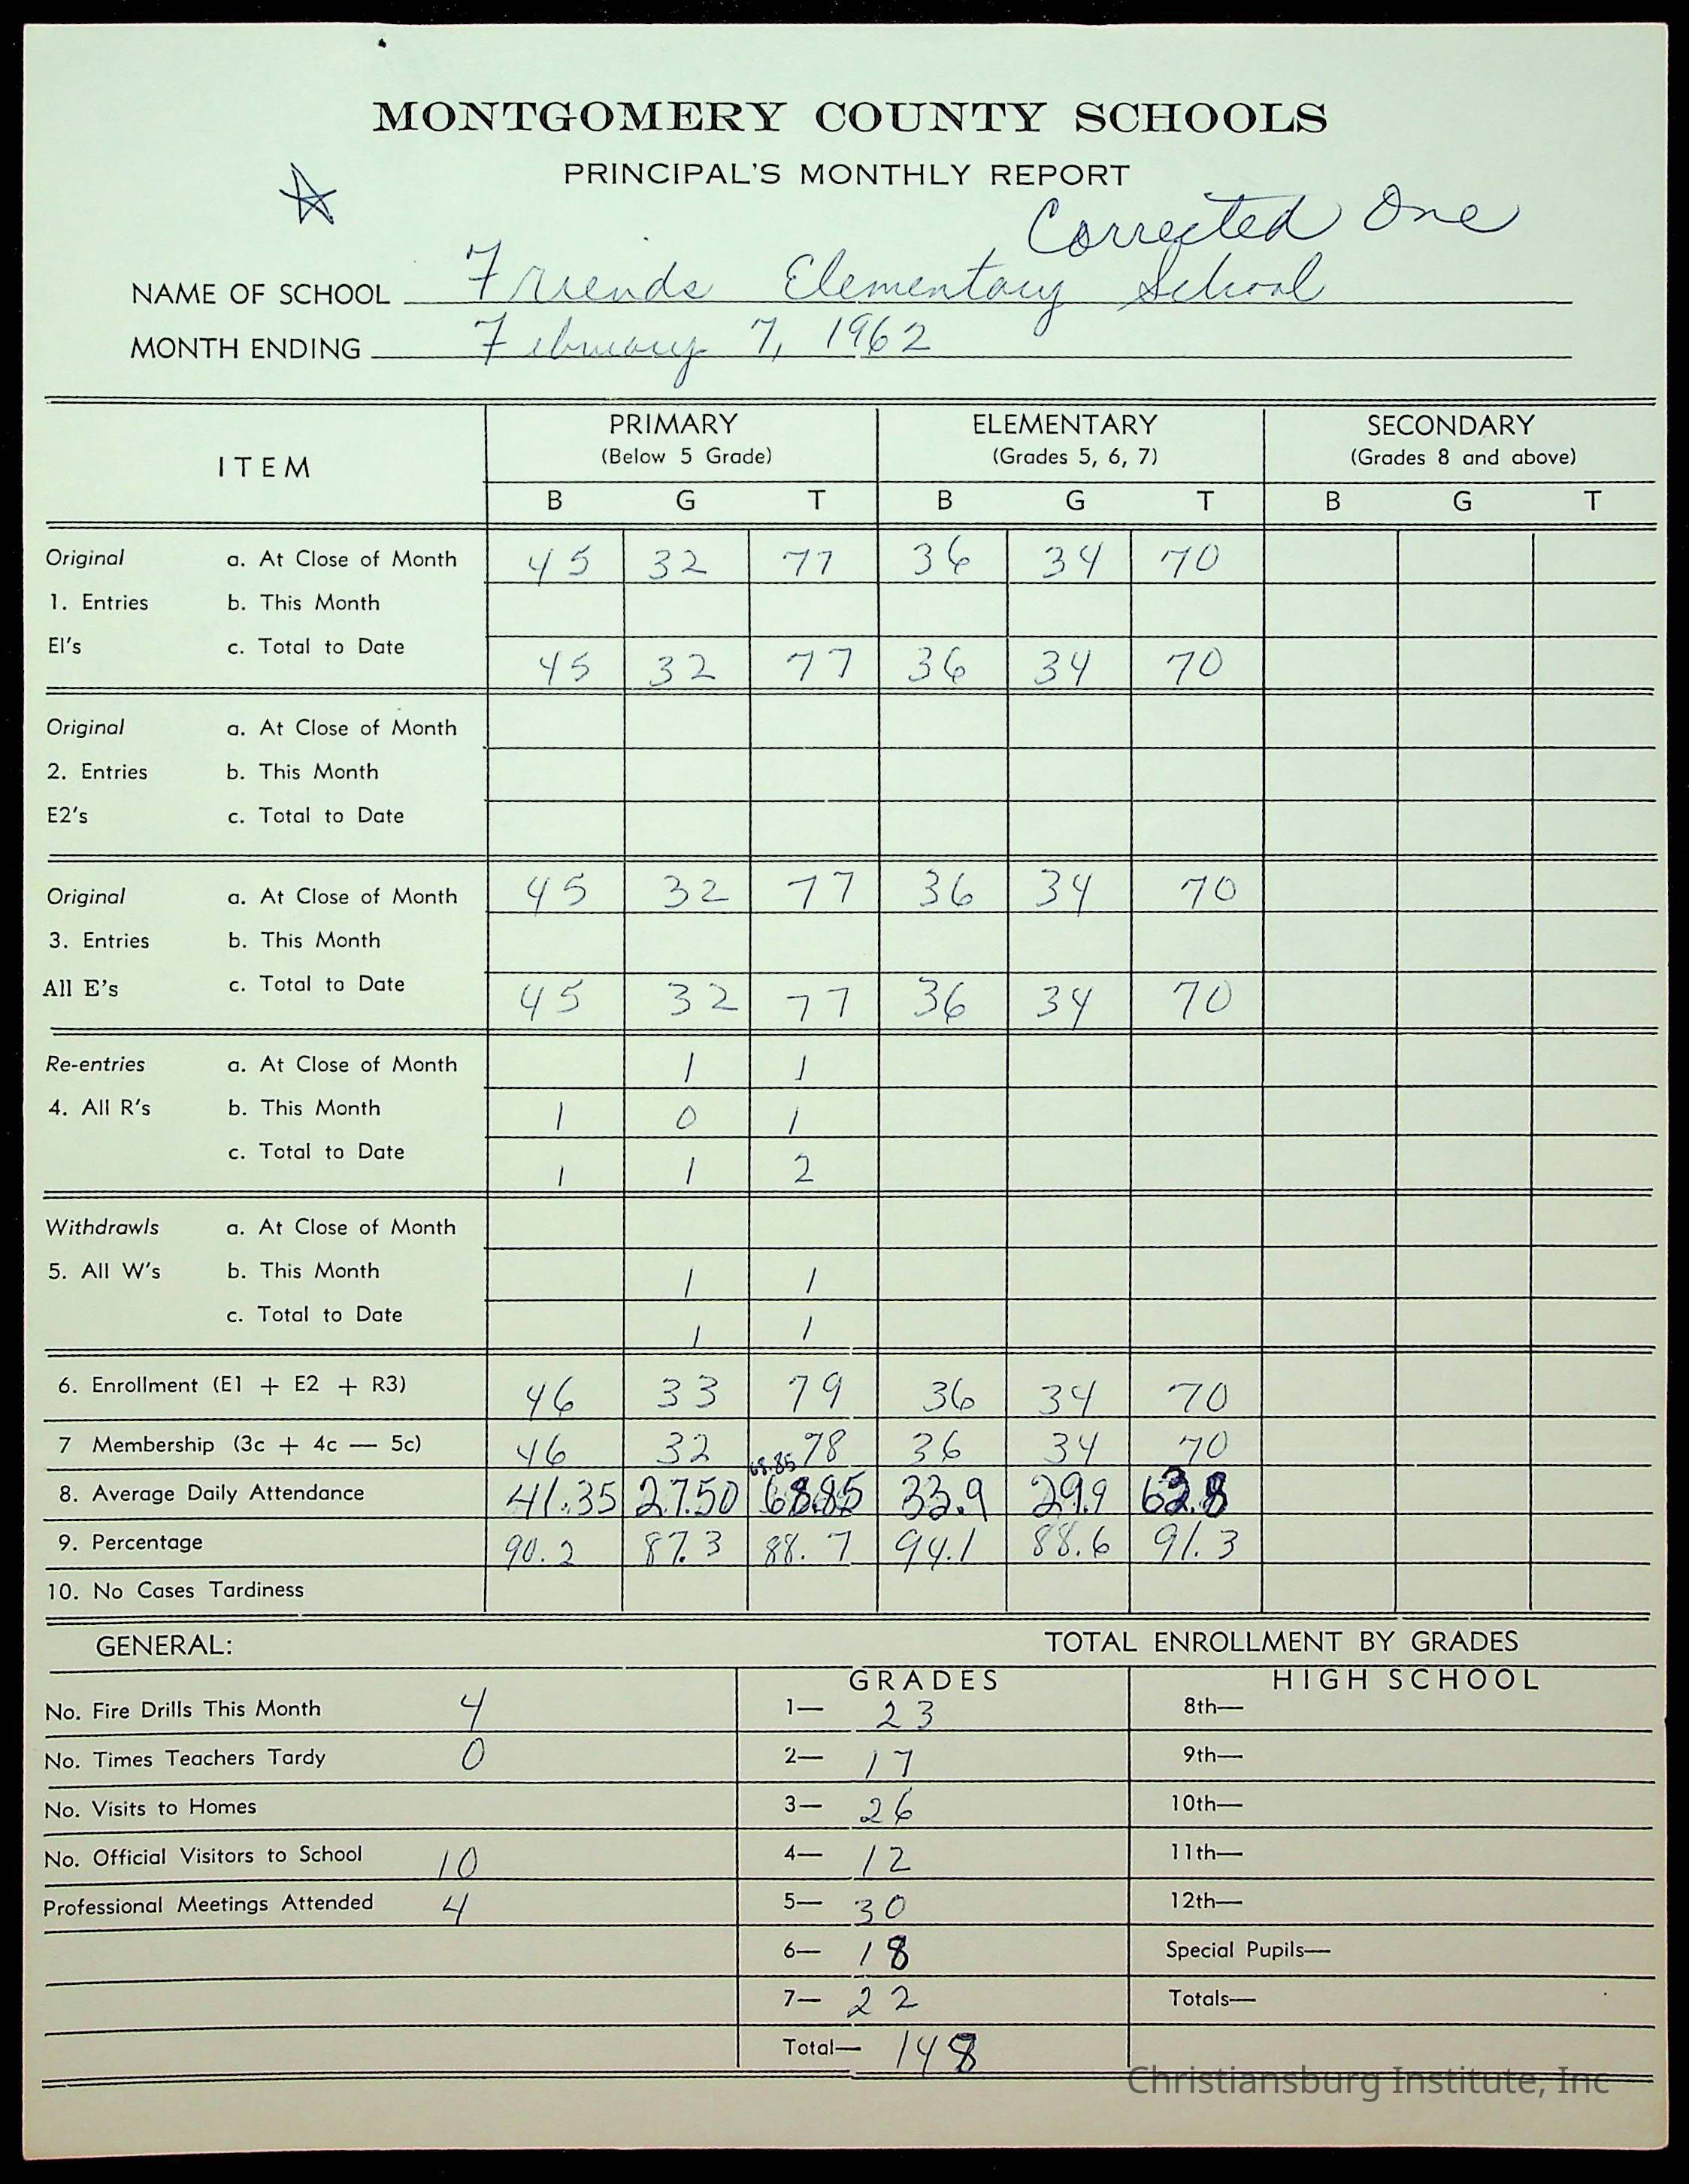 MONTGOMERY COUNTY SCHOOLS
PRINCIPAL'S MONTHLY REPORT
Corrected One
NAME OF SCHOOL Friends Elementary School
MONTH ENDING February 7, 1962
ITEM PRIMARY (Below 5 Grade) ELEMENTARY (Grades 5, 6, 7) SECONDARY (Grades 8 and above)
B G T B G T B G T
Original a. At Close of Month 45 32 77 36 34 70
1. Entries b. This Month
El's c. Total to Date 45 32 77 36 34 70
Original a. At Close of Month
2. Entries b. This Month
E2's c. Total to Date
Original a. At Close of Month 45 32 77 36 34 70
3. Entries b. This Month
All E's c. Total to Date 45 32 77 36 34 70
Re-entries a. At Close of Month 1 1
4. All R's b. This Month 1 0 1
c. Total to Date 1 1 2
Withdrawls a. At Close of Month
5. All W's b. This Month 1 1
c. Total to Date 1 1
6. Enrollment (E1 + E2 + R3) 46 33 79 36 34 70
7 Membership (3c + 4c — 5c) 46 32 78 36 34 70
68.85
8. Average Daily Attendance 41.35 27.50 68.85 33.9 29.9 63.8
9. Percentage 90.2 87.3 88.7 94.1 88.6 91.3
10. No Cases Tardiness
GENERAL: TOTAL ENROLLMENT BY GRADES
GRADES HIGH SCHOOL
No. Fire Drills This Month 4 1— 23 8th—
No. Times Teachers Tardy 0 2— 17 9th—
No. Visits to Homes 3— 26 10th—
No. Official Visitors to School 10 4— 12 11th—
Professional Meetings Attended 4 5— 30 12th—
6— 18 Special Pupils—
7— 22 Totals—
Total— 148
Christiansburg Institute, Inc